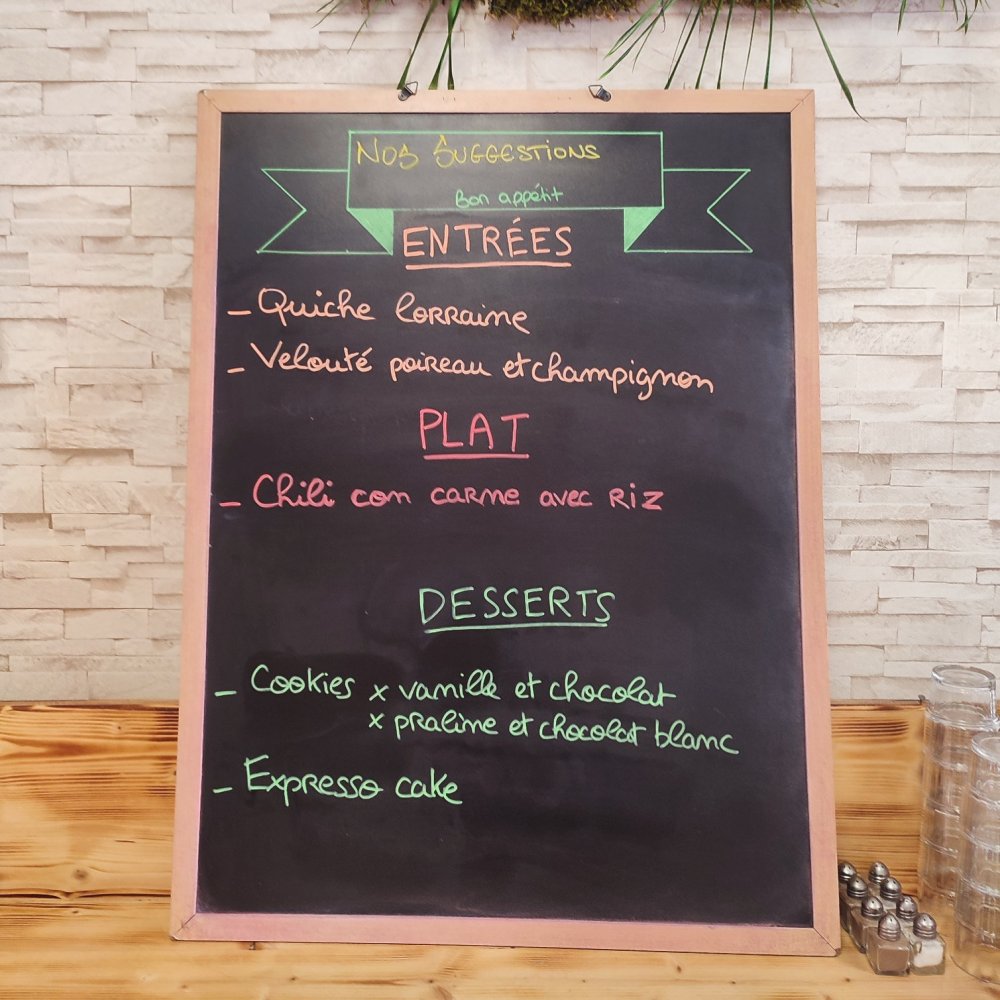 Nos Suggestions
Bon appétit
ENTRÉES
- Quiche lorraine
- Velouté poireau et champignon
PLAT
- Chili con carne avec riz
DESSERTS
- Cookies x vanille et chocolat
x praline et chocolat blanc
- Expresso cake